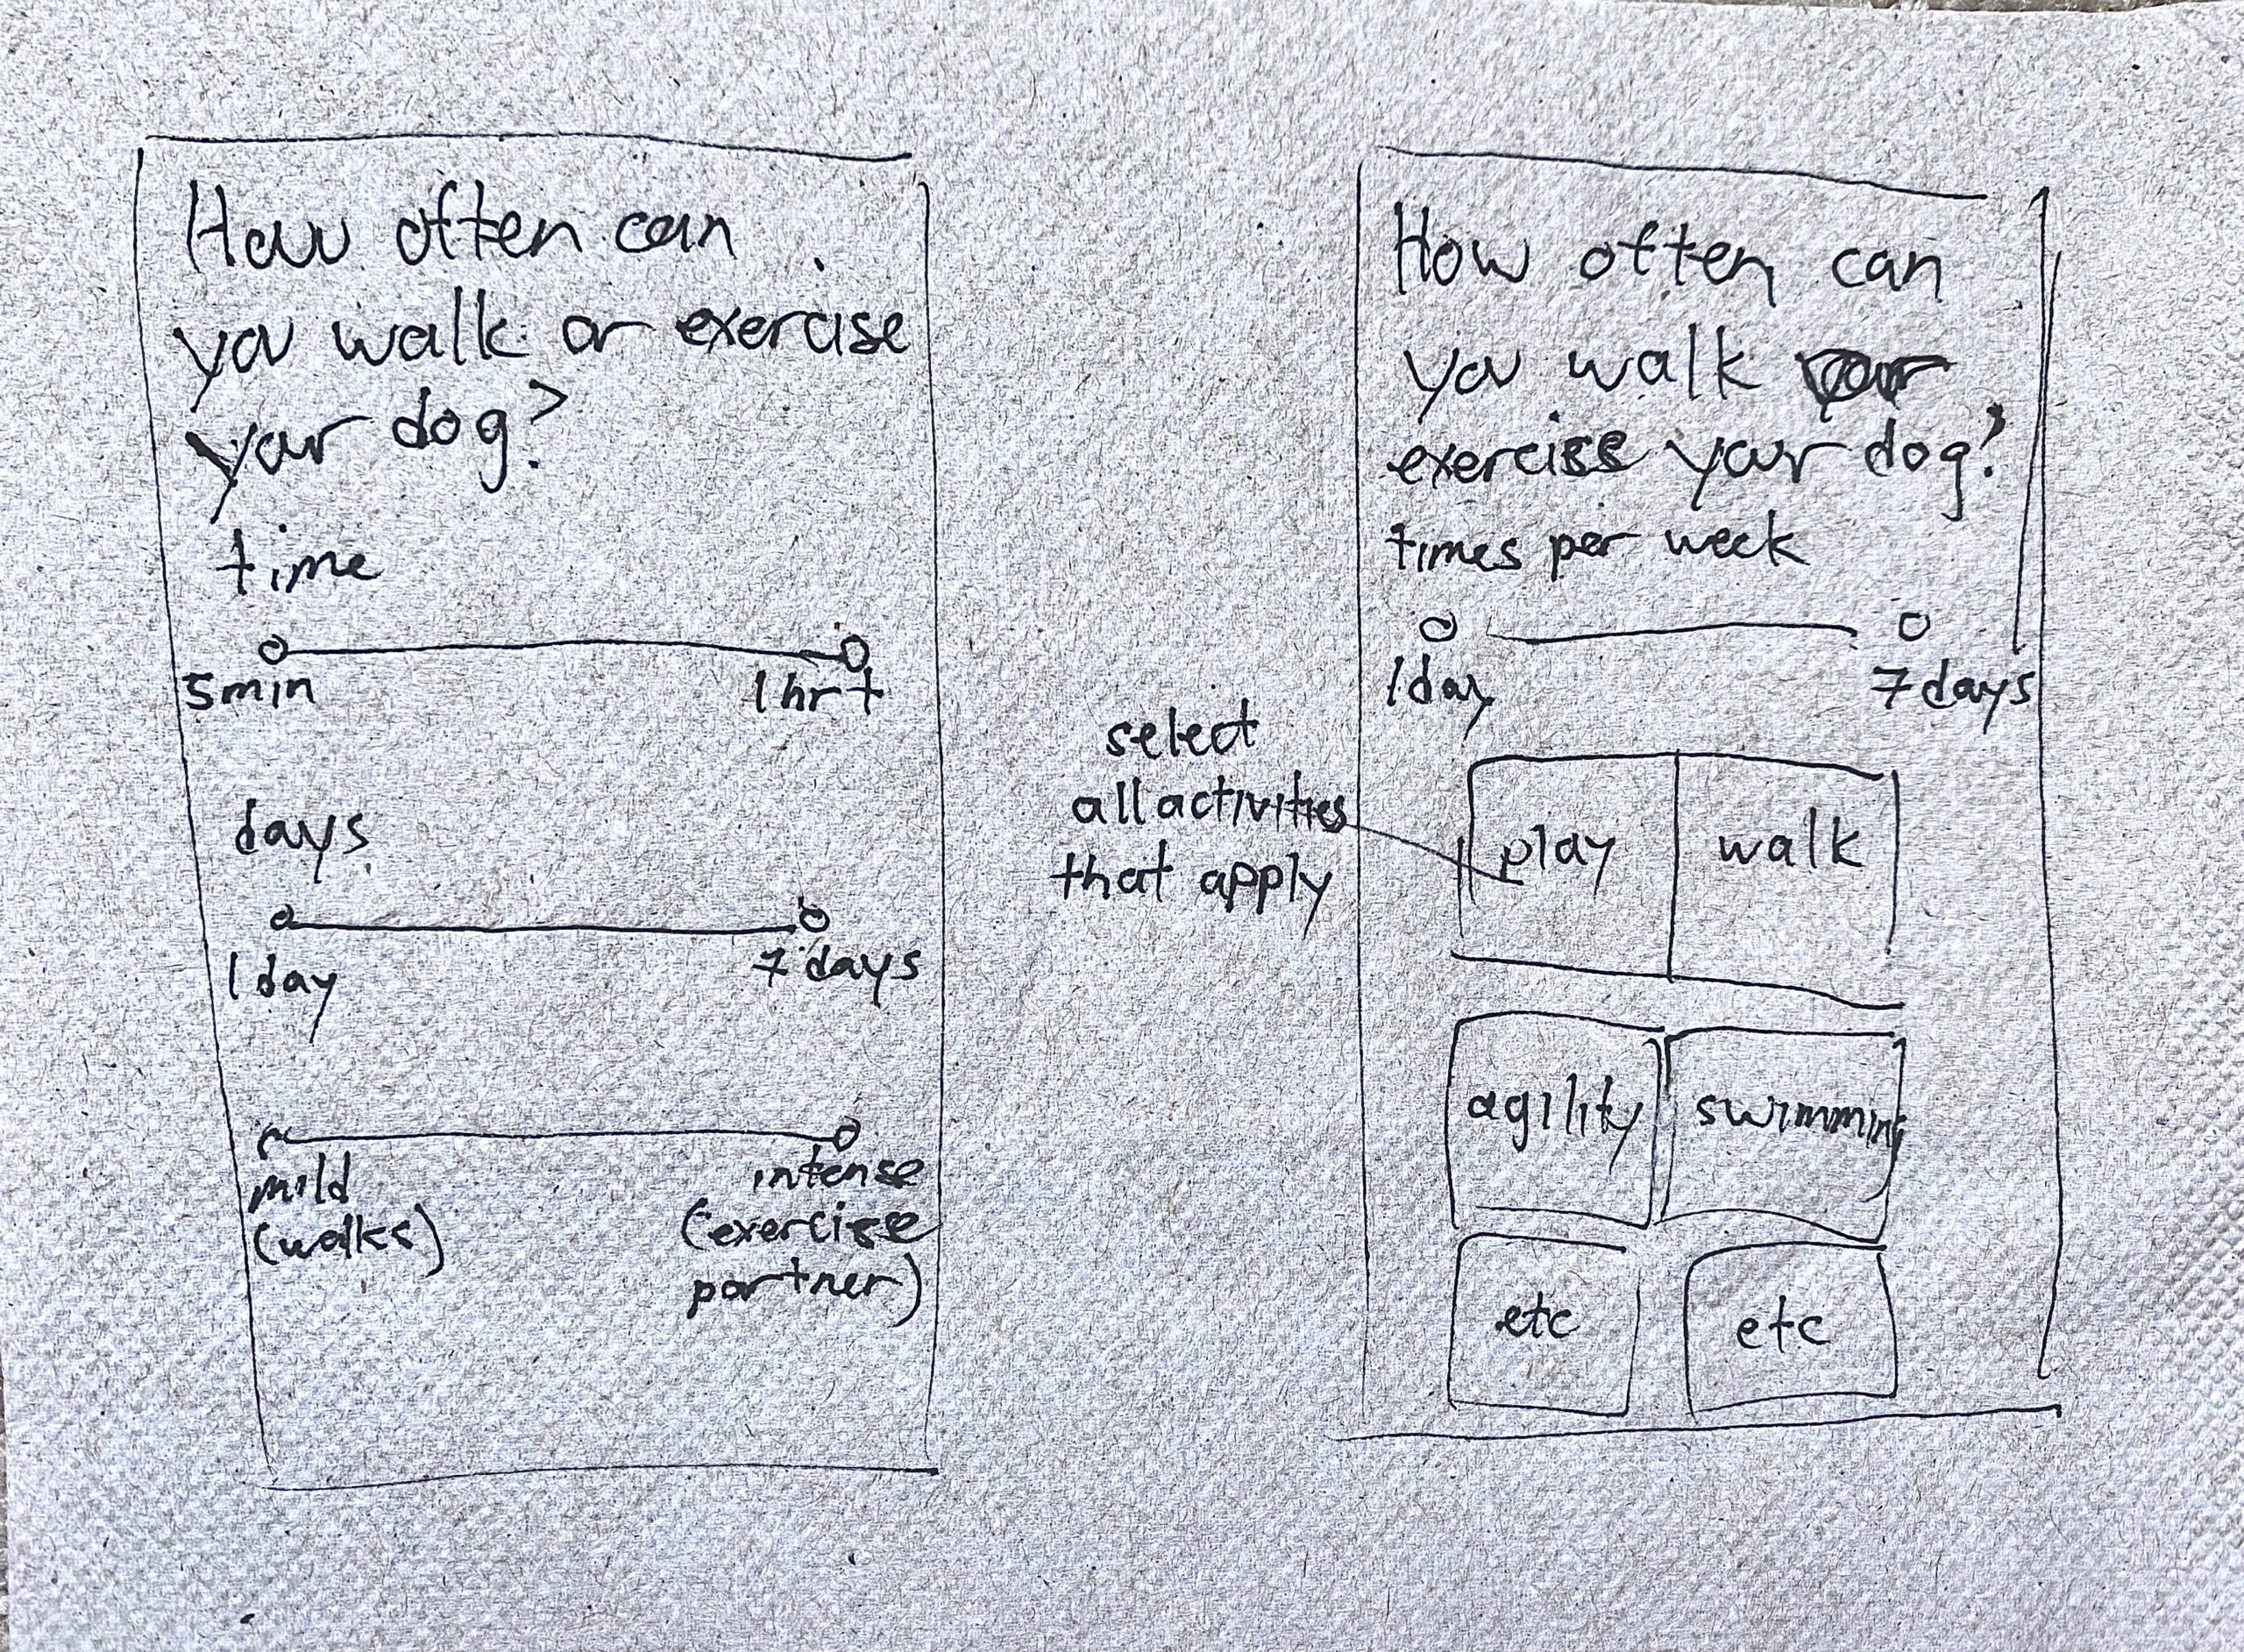 How often can
you walk or exercise
your dog?
time
5min 1hr+
days
1day 7days
mild intense
(walks) (exercise
partner)
select
all activities
that apply
How often can
you walk or
exercise your dog?
times per week
1day 7days
play walk
agility swimming
etc etc